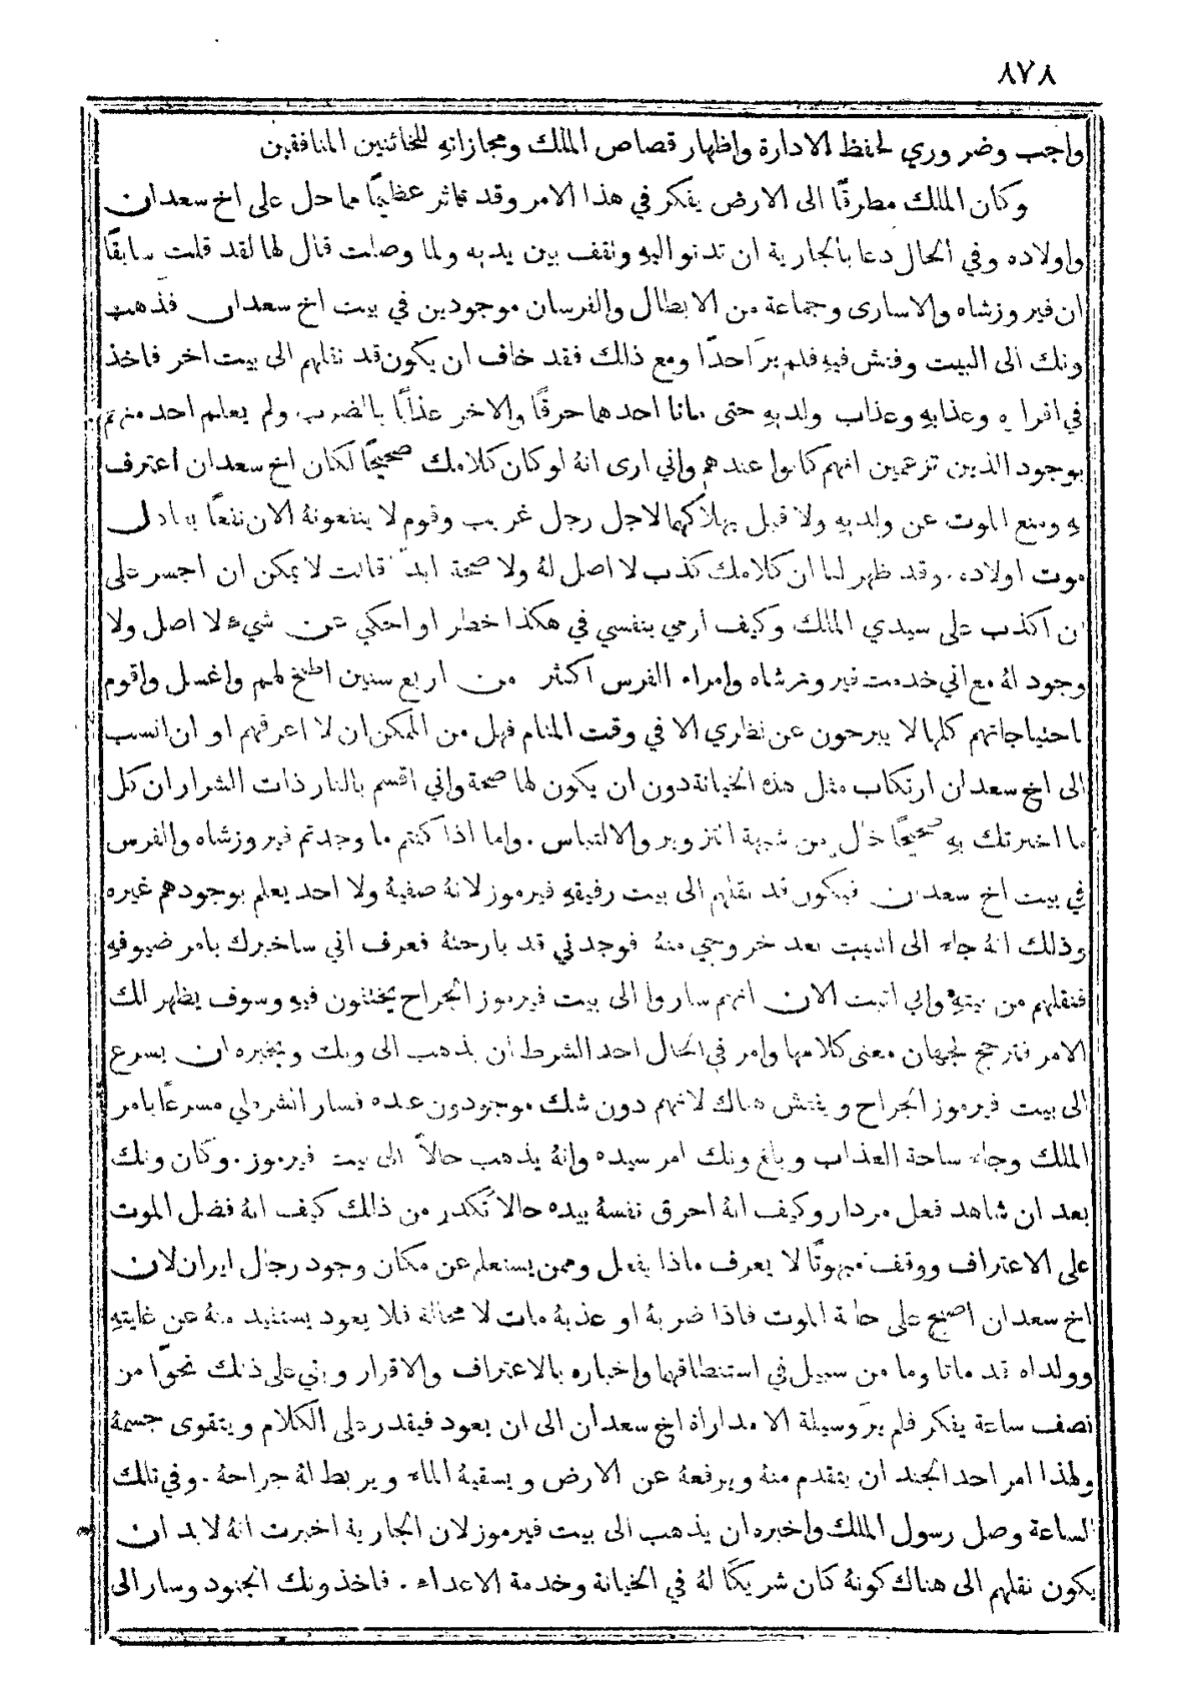 ٨٧٨
واجب وضروري لحفظ الادارة واظهار قصاص الملك ومجازاتهِ للخائنين المنافقين
وكان الملك مطرقًا الى الارض يفكر في هذا الامر وقد تاثر عظيمًا مما حل على اخ سعدان
واولاده وفي الحال دعا بالجارية ان تدنو اليهِ وتقف بين يديه ولما وصلت قال لها لقد قلت سابقًا
ان فيروزشاه والاسارى وجماعة من الابطال والفرسان موجودين في بيت اخ سعدان فذهب
ونك الى البيت وفتش فيهِ فلم يرَ احدًا ومع ذلك فقد خاف ان يكون قد نقلهم الى بيت اخر فاخذ
في اقراره وعذابهِ وعذاب ولديهِ حتى ماتا احدهما حرقًا والاخر عذابًا بالضرب ولم يعلم احد منهم
بوجود الذين تزعمين انهم كانوا عندهم واني ارى انهُ لو كان كلامك صحيحًا لكان اخ سعدان اعترف
بهِ ومنع الموت عن ولديهِ ولا قبل بهلاكهما لاجل رجل غريب وقوم لا ينفعونهُ الان نفعًا يعادل
موت اولاده . وقد ظهر لنا ان كلامك كذب لا اصل لهُ ولا صحة ابدًا قالت لا يمكن ان اجسر على
ان اكذب على سيدي الملك وكيف ارمي بنفسي في هكذا خطر او احكي عن شيء لا اصل ولا
وجود لهُ مع اني خدمت فيروزشاه وامراء الفرس اكثر من اربع سنين اطبخ لهم واغسل واقوم
باحتياجاتهم كلها لا يبرحون عن نظري الا في وقت المنام فهل من الممكن ان لا اعرفهم او ان انسب
الى اخ سعدان ارتكاب مثل هذه الخيانة دون ان يكون لها صحة واني اقسم بالنار ذات الشرار ان كل
ما اخبرتك بهِ صحيحًا خالٍ من شبهة التزوير والالتباس . واما اذا كنتم ما وجدتم فيروزشاه والفرس
في بيت اخ سعدان فيكون قد نقلهم الى بيت رفيقهِ فيرموز لانهُ صفيهُ ولا احد يعلم بوجودهم غيره
وذلك انهُ جاء الى البيت بعد خروجي منهُ فوجدني قد بارحتهُ فعرف اني ساخبرك بامر ضيوفهِ
فنقلهم من بيتهِ واني اثبت الان انهم ساروا الى بيت فيرموز الجراح يختفون فيهِ وسوف يظهر لك
الامر فترجح لجهان معنى كلامها وامر في الحال احد الشرط ان يذهب الى ونك ويخبره ان يسرع
الى بيت فيرموز الجراح ويفتش هناك لانهم دون شك موجودون عنده فسار الشرطي مسرعًا بامر
الملك وجاء ساحة العذاب وبلغ ونك امر سيده وانهُ يذهب حالاً الى بيت فيرموز . وكان ونك
بعد ان شاهد فعل مردار وكيف انهُ احرق نفسهُ بيده حالا تكدر من ذلك كيف انهُ فضل الموت
على الاعتراف ووقف مبهوتًا لا يعرف ماذا يفعل وممن يستعلم عن مكان وجود رجال ايران لان
اخ سعدان اصبح على حالة الموت فاذا ضربهُ او عذبهُ مات لا محالة فلا يعود يستفيد منهُ عن غايتهِ
وولداه قد ماتا وما من سبيل في استنطاقهما واخباره بالاعتراف والاقرار وبقي على ذلك نحوًا من
نصف ساعة يفكر فلم يرَ وسيلة الا مداراة اخ سعدان الى ان يعود فيقدر على الكلام ويتقوى جسمهُ
ولهذا امر احد الجند ان يتقدم منهُ ويرفعهُ عن الارض ويسقيهُ الماء ويربط لهُ جراحهُ . وفي تلك
الساعة وصل رسول الملك واخبره ان يذهب الى بيت فيرموز لان الجارية اخبرت انهُ لا بد ان
يكون نقلهم الى هناك كونهُ كان شريكًا لهُ في الخيانة وخدمة الاعداء . فاخذ ونك الجنود وسار الى